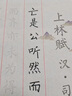 上林赋 汉·司
亡是公听然而